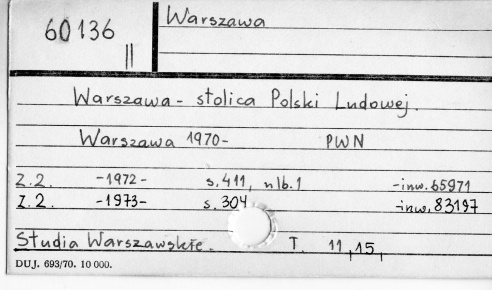 60136
II
Warszawa
Warszawa - stolica Polski Ludowej.
Warszawa 1970- PWN
Z.2. -1972- s.411, nlb.1 -inw.65971
Z.2. -1973- s.304 -inw.83197
Studia Warszawskie. T. 11,15,
DUJ. 693/70. 10 000.